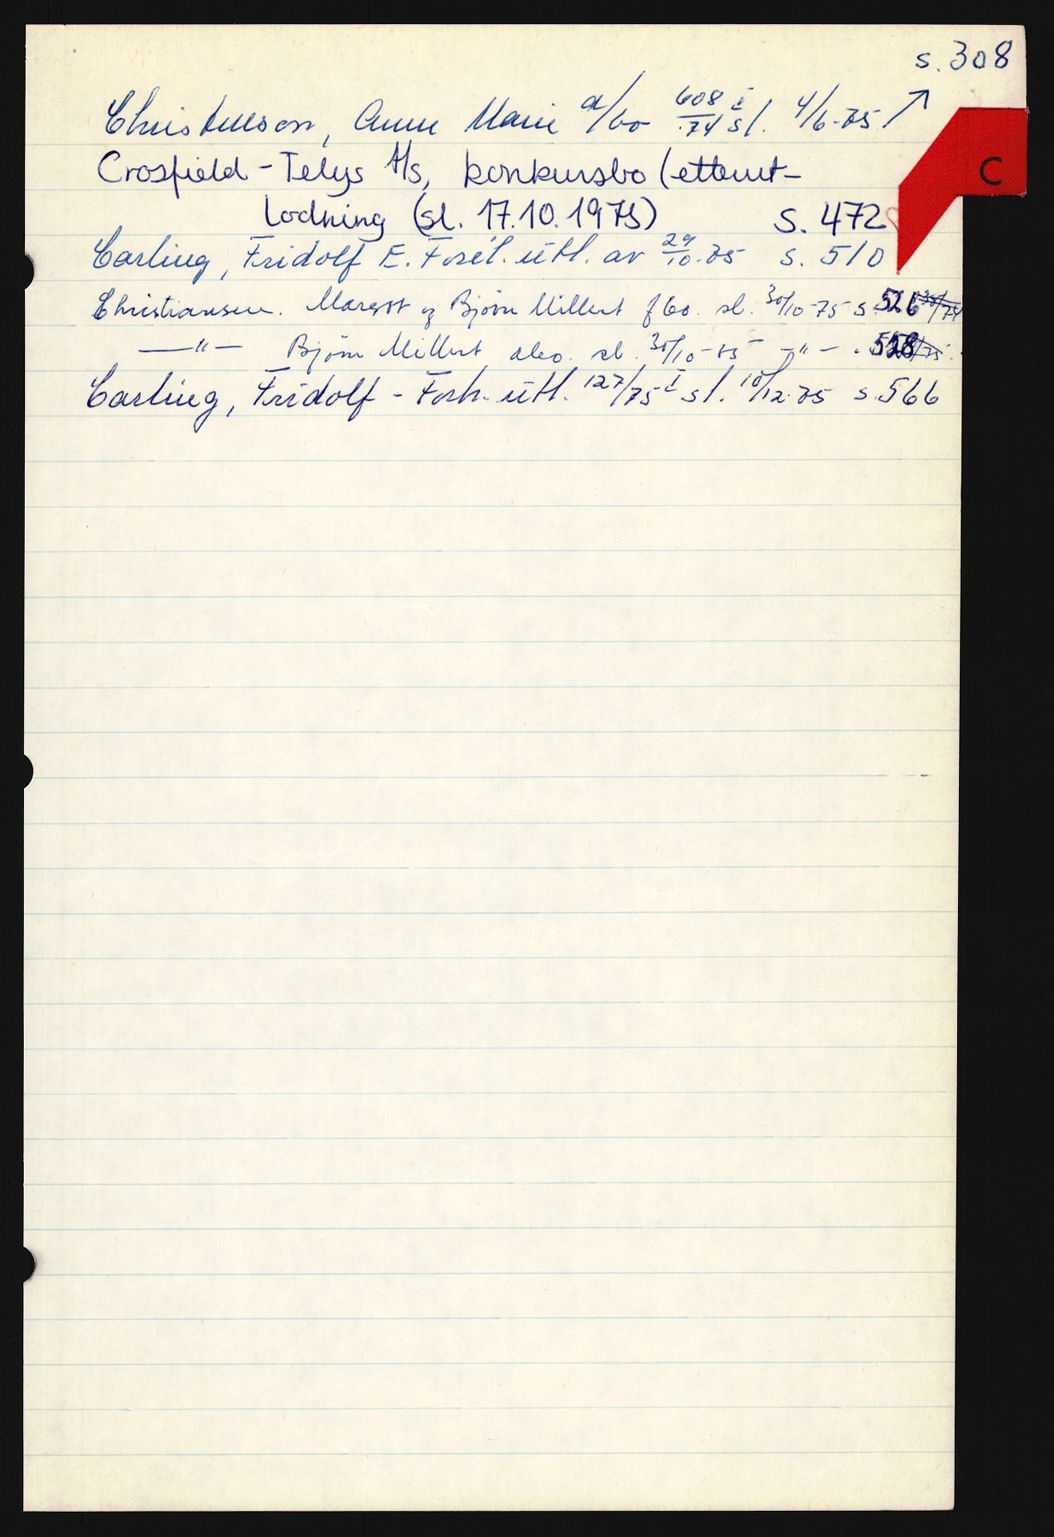 s. 308
Christensen, Anne Marie a/bo 608/74 I sl. 4/6-75
C
Crosfield-Telys A/s, konkursbo (etterut-
lodning (sl. 17.10.1975) s. 472
Carling, Fridolf E. Forel. utl. av 29/10-75 s. 510
Christiansen. Margot og Bjørn Millert f bo. sl. 30/10-75 s. 526
—"— Bjørn Millert sl. 30/10-75 —"—
Carling, Fridolf - Forh. utl. 127/75 I sl. 10/12-75 s. 566